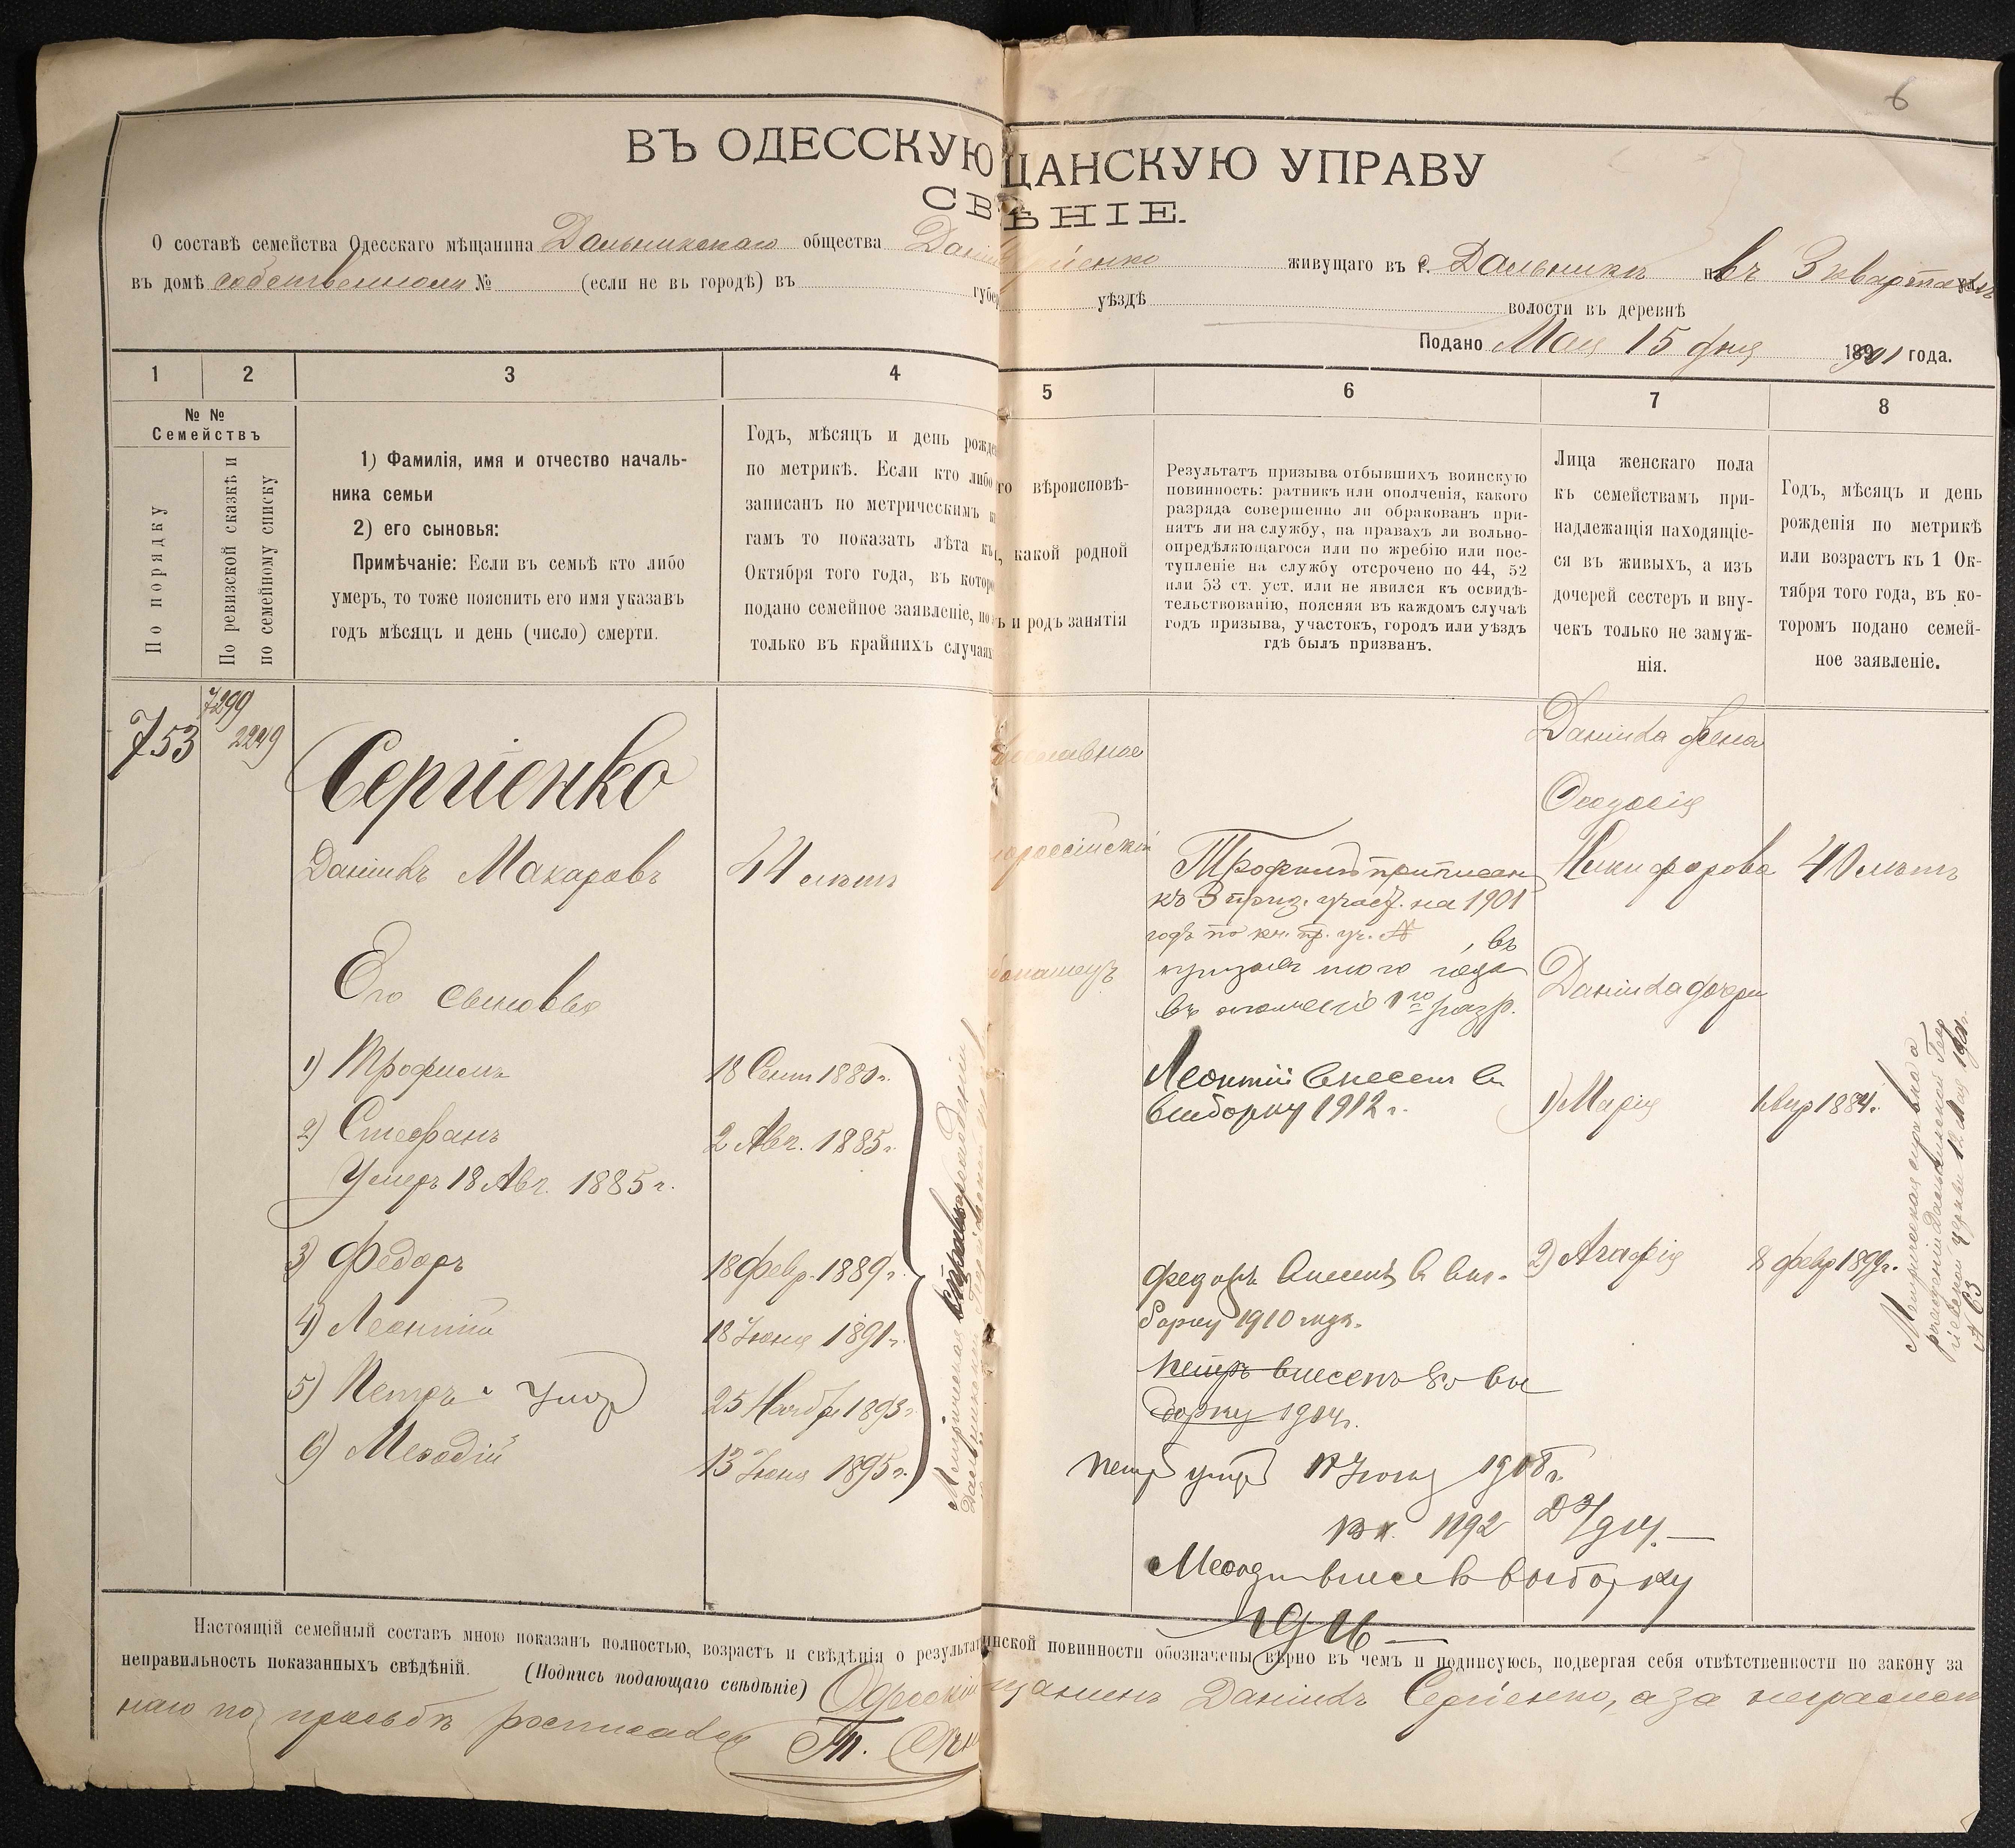 6
ВЪ ОДЕССКУЮ ЩАНСКУЮ УПРАВУ
СВ ѢНІЕ.
О составѣ семейства Одесскаго мѣщанина Дальникскаго общества Дані гіенко живущаго въ с. Дальникъ въ 3 кварталѣ
въ домѣ собственномъ № (если не въ городѣ) въ губер уѣздѣ волости въ деревнѣ
Подано Мая 15 дня 1901 года.
1 2 3 4 5 6 7 8
№ №
Семействъ
По порядку
По ревизской сказкѣ и
по семейному списку
1) Фамилія, имя и отчество началь-
ника семьи
2) его сыновья:
Примѣчаніе: Если въ семьѣ кто либо
умеръ, то тоже пояснить его имя указавъ
годъ мѣсяцъ и день (число) смерти.
Годъ, мѣсяцъ и день рожде
по метрикѣ. Если кто либо
записанъ по метрическимъ к
гамъ то показать лѣта къ
Октября того года, въ которо
подано семейное заявленіе, но
только въ крайнихъ случаяхъ
го вѣроисповѣ-
, какой родной
ъ и родъ занятія
Результатъ призыва отбывшихъ воинскую
повинность: ратникъ или ополченія, какого
разряда совершенно ли обракованъ при-
нятъ ли на службу, на правахъ ли вольно-
опредѣляющагося или по жребію или пос-
тупленіе на службу отсрочено по 44, 52
или 53 ст. уст. или не явился къ освидѣ-
тельствованію, поясняя въ каждомъ случаѣ
годъ призыва, участокъ, городъ или уѣздъ
гдѣ былъ призванъ.
Лица женскаго пола
къ семействамъ при-
надлежащія находящіе-
ся въ живыхъ, а изъ
дочерей сестеръ и вну-
чекъ только не замуж-
нія.
Годъ, мѣсяцъ и день
рожденія по метрикѣ
или возрастъ къ 1 Ок-
тября того года, въ ко-
торомъ подано семей-
ное заявленіе.
753
7299
2249
Сергіенко
Даніилъ Макаровъ 44 лѣтъ
Его сыновья
1) Трофимъ 18 Сент 1880 г.
2) Стефанъ 2 Авг. 1885 г.
Умеръ 18 Авг. 1885 г.
3) Федоръ 18 Февр. 1889 г.
4) Леонтій 18 Іюня 1891 г.
5) Петръ умер 25 Ноября 1893 г.
6) Меѳодій 13 Іюня 1895 г.
Метрическая справка о рожденіи
Дальникской
славное
россійскій
Трофимъ приписан
къ 3 приз. участ. на 1901
годъ по кн. пр. уч. №, въ
призывъ того года
въ ополченіе 1го разр.
Леонтій внесенъ въ
выборку 1912 г.
Федоръ внесенъ въ вы-
борку 1910 года.
Петръ внесенъ во вы
борку 1914 г.
Петр умер 17 Іюня 1908 г.
вх. 1192
Меѳоди внесе в выборку
1916
Даніила жена
Ѳеодосія
Никифорова 40 лѣтъ
Даніила дочери
1) Марія 1 Апр 1884 г.
2) Агафія 8 февр 1899 г.
Метрическая справка о
рожденіи Дальникской Геор
гіевской церкви 12 Мая 1901 г.
№ 63
Настоящій семейный составъ мною показанъ полностью, возрастъ и свѣдѣнія о результат инской повинности обозначены вѣрно въ чемъ и подписуюсь, подвергая себя отвѣтственности по закону за
неправильность показанныхъ свѣдѣній. (Подпись подающаго свѣдѣніе) Одесскій щанинъ Даніилъ Сергіенко, а за неграмот
наго по просьбѣ росписался Т.